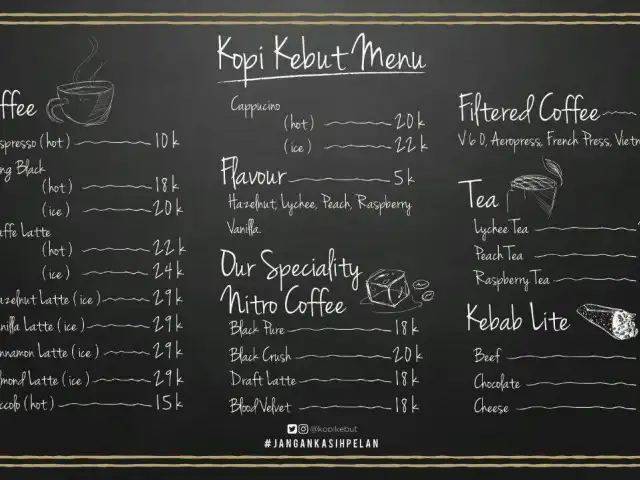 Kopi Kebut Menu
ffee
spresso (hot) 10k
ng Black
(hot) 18k
(ice) 20k
affe Latte
(hot) 22k
(ice) 24k
azelnut Latte (ice) 29k
nilla Latte (ice) 29k
nnamon Latte (ice) 29k
lmond Latte (ice) 29k
ccolo (hot) 15k
Cappucino
(hot) 20k
(ice) 22k
Flavour 5k
Hazelnut, Lychee, Peach, Raspberry
Vanilla.
Our Speciality
Nitro Coffee
Black Pure 18k
Black Crush 20k
Draft Latte 18k
Blood Velvet 18k
Filtered Coffee
V60, Aeropress, French Press, Vietn
Tea
Lychee Tea
Peach Tea
Raspberry Tea
Kebab Lite
Beef
Chocolate
Cheese
@kopikebut
#JANGANKASIHPELAN